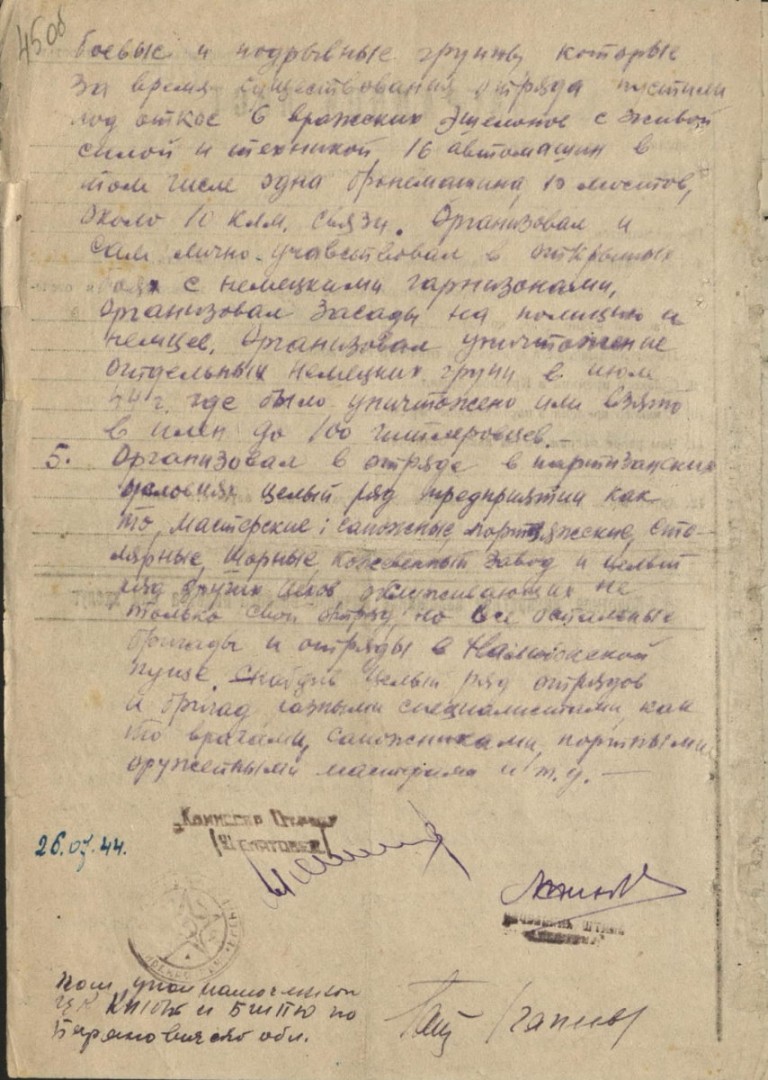 45об
боевые и подрывные группы которые
за время существования отряда пустили
под откос 6 вражских эшелонов с живой
силой и техникой, 16 автомашин в
том числе одна бронемашина, 13 мостов,
около 10 клм. связи. Организовал и
сам лично учавствовал в открытых
боях с немецкими гарнизонами,
организовал засады на полицию и
немцев. Организовал уничтожение
отдельных немецких групп в июле
44 г, где было уничтожено или взято
в плен до 100 гитлеровцев.—
5. Организовал в отряде в партизанских
условиях целый ряд предприятии как
то, мастерские: сапожные, портняжские, сто-
лярные, шорные, кожевенный завод и целый
ряд других цехов обслуживающих не
только свой отряд, но все остальные
бригады и отряды в Налибокской
пуще. Снабдив целый ряд отрядов
и бригад разными специалистами, как
то врачами, сапожниками, портными
оружейными мастерами и т.д.—
26.07.44.
Комиссар Отряда
Начальник штаба
КП(б)Б и БШПД по
Барановичской обл.